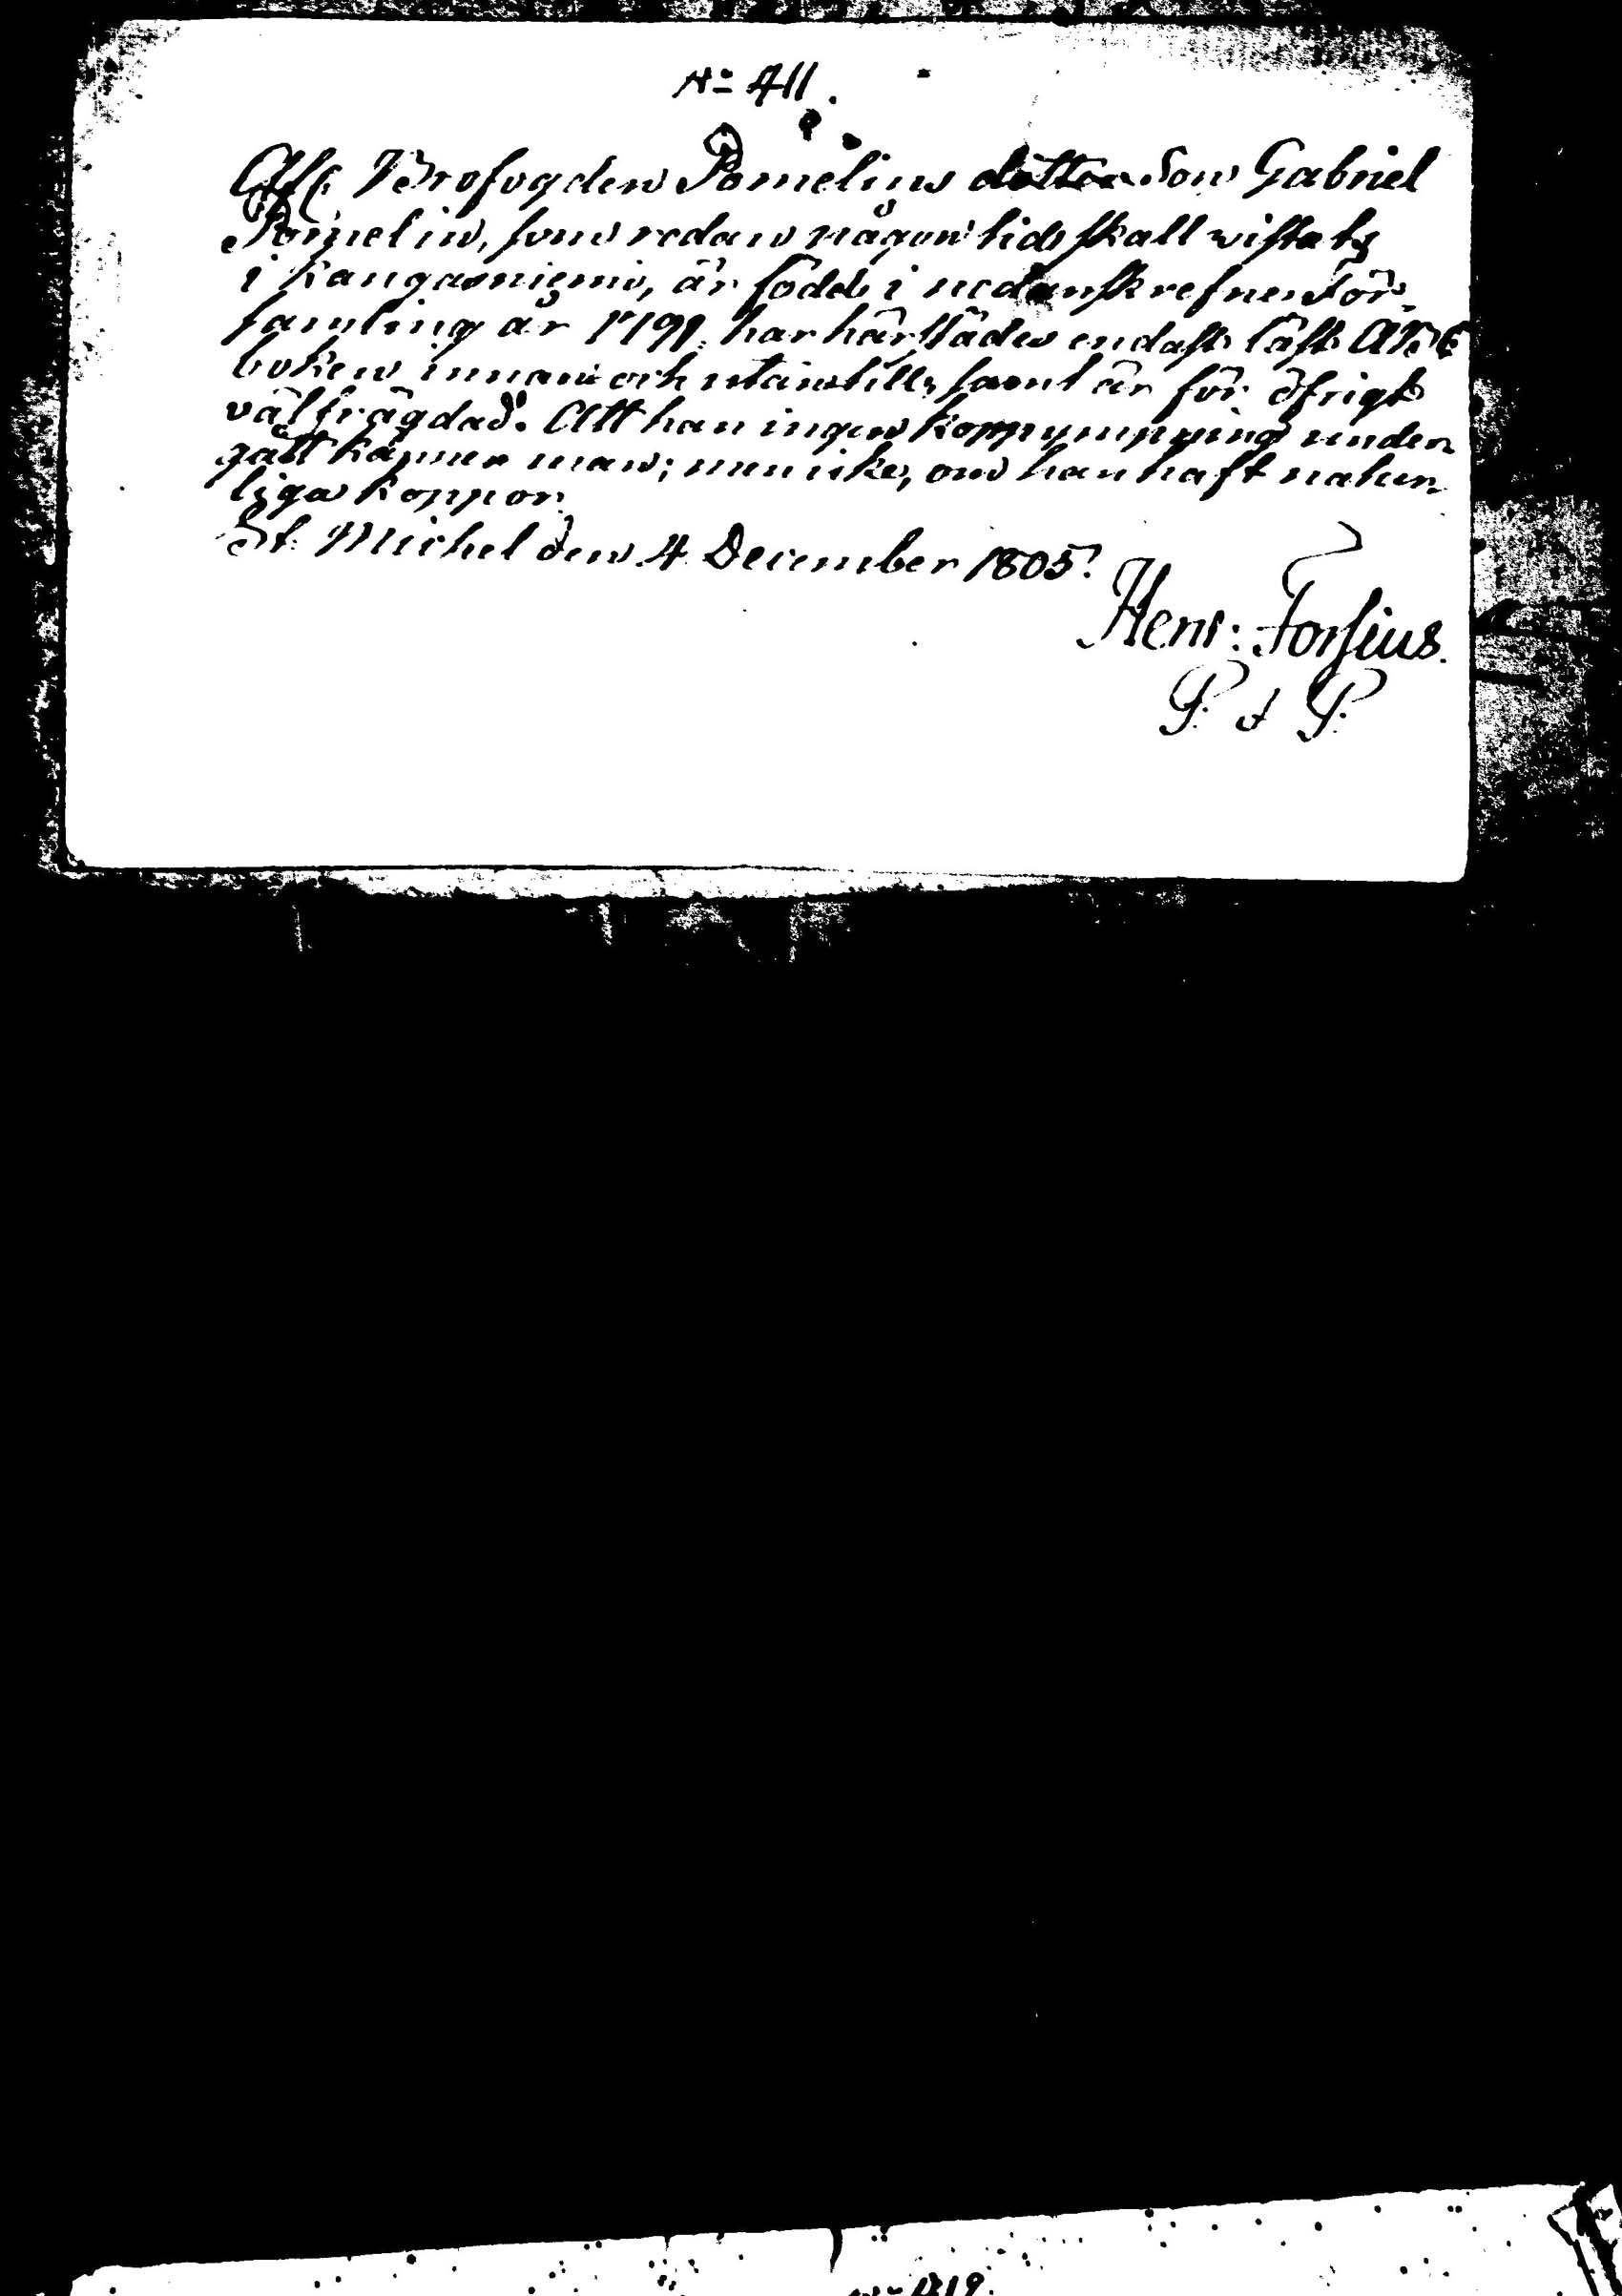 No 411.
Afl. Brofogden Pomelius dotter Son Gabriel
Pomelin, som redan någon tid skall wistats
i Kangasniemi, är född i nedanskrefne För-
samling år 1791, har härstädes endast läst ABC
boken innan och utantill, samt är för öfrigt
välfrägdad. Att han ingen koppympning under-
gått känner man; men icke, om han haft natur-
liga koppor.
St. Michel den 4 December 1805.
Henr: Forsius.
P. A P.
No 412.